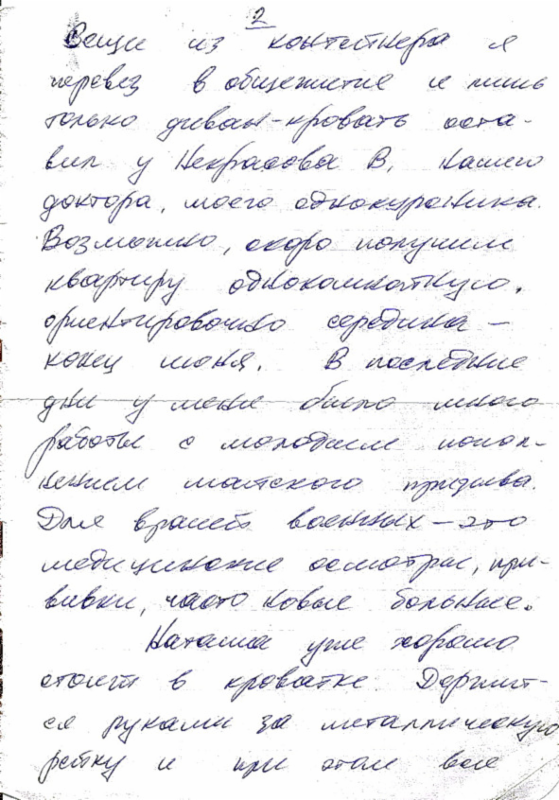 2
Вещи из контейнера я
перевез в общежитие и лишь
только диван-кровать оста-
вил у Некрасова В, нашего
доктора, моего однокурсника.
Возможно, скоро получим
квартиру однокомнатную,
ориентировочно середина –
конец июня. В последние
дни у меня было много
работы с молодым попол-
нением майского призыва.
Для врачей военных – это
медицинские осмотры, при-
вивки, часто новые больные.
Наташа уже хорошо
стоит в кроватке. Держит-
ся руками за металлическую
рейку и при этом все